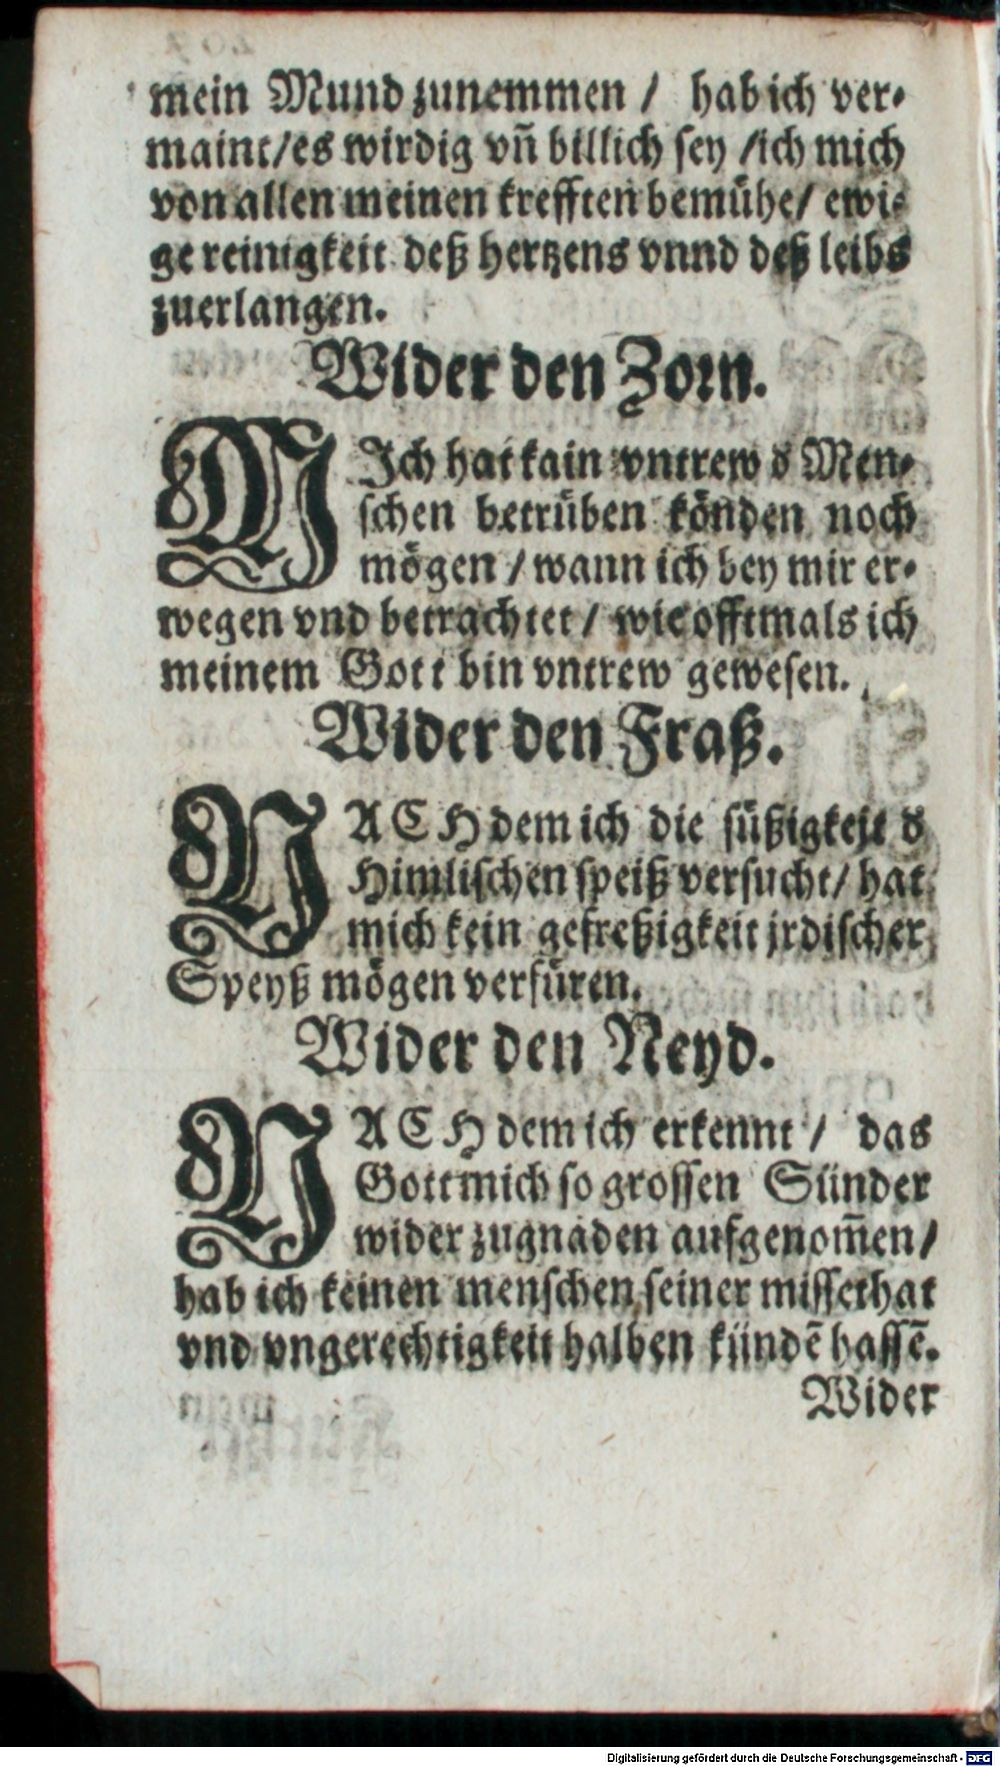 mein Mund zunemmen / hab ich ver⸗
maint/es wirdig vn̄ billich sey /ich mich
von allen meinen krefften bemühe/ ewi⸗
ge reinigkeit deß hertzens vnnd deß leibs
zuerlangen.
Wider den Zorn.
MJch hat kain vntrew d Men⸗
schen betrüben könden noch
mögen / wann ich bey mir er⸗
wegen vnd betrachtet / wie offtmals ich
meinem Gott bin vntrew gewesen.
Wider den Fraß.
NACH dem ich die süßigkeit d
Himlischen speiß versucht/ hat
mich kein gefreßigkeit jrdischer
Speyß mögen verfüren.
Wider den Neyd.
NACH dem ich erkennt / das
Gott mich so grossen Sünder
wider zugnaden aufgenom̄en/
hab ich keinen menschen seiner missethat
vnd vngerechtigkeit halben kündē hassē.
Wider
Digitalisierung gefördert durch die Deutsche Forschungsgemeinschaft - DFG